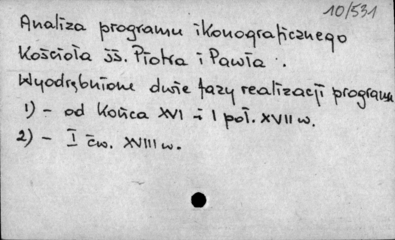 10/531
Analiza programu ikonograficznego
Kościoła śś. Piotra i Pawła.
Wyodrębnione dwie fazy realizacji programu
1) – od końca XVI – I poł. XVII w.
2) – I ćw. XVIII w.